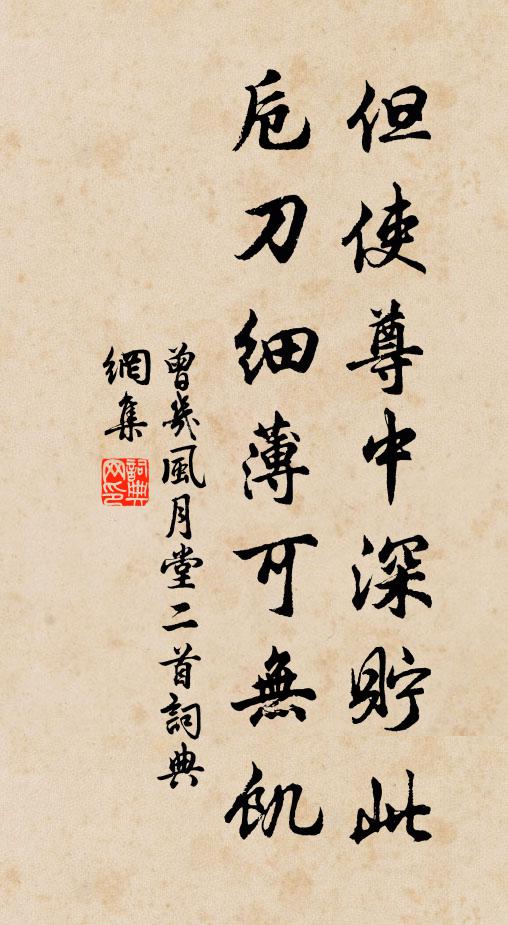 但使尊中深貯此
卮刀細薄可無飢
曾幾風月堂二首詞典
網集
詞典网印